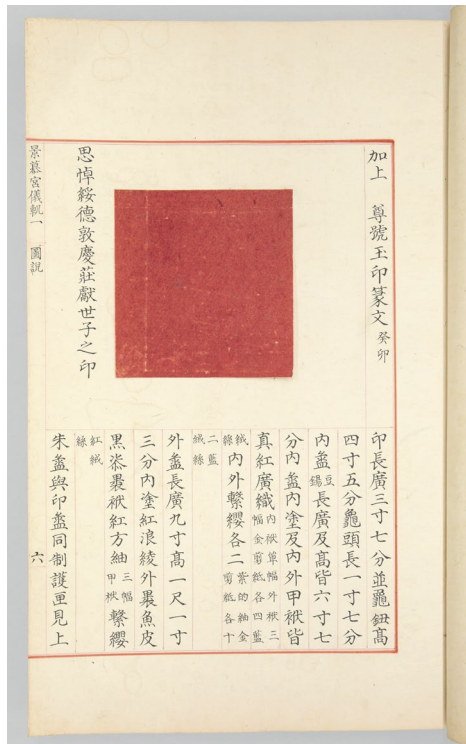 加上 尊號玉印篆文 癸卯
思悼綏德敦慶莊獻世子之印
印長廣三寸七分並龜鈕髙
四寸五分龜頭長一寸七分
內盝豆錫長廣及髙皆六寸七
分內盝內塗及內外甲袱皆
真紅廣織內袱單幅外袱三幅金剪紙各四藍
絨絲內外繫纓各二紫的紬金剪紙各十
二藍絨絲
外盝長廣九寸髙一尺一寸
三分內塗紅浪綾外裹魚皮
黑柒裹袱紅方紬三幅甲袱繫纓
紅絨絲
朱盝與印盝同制護匣見上
景慕宮儀軌一 圖說 六